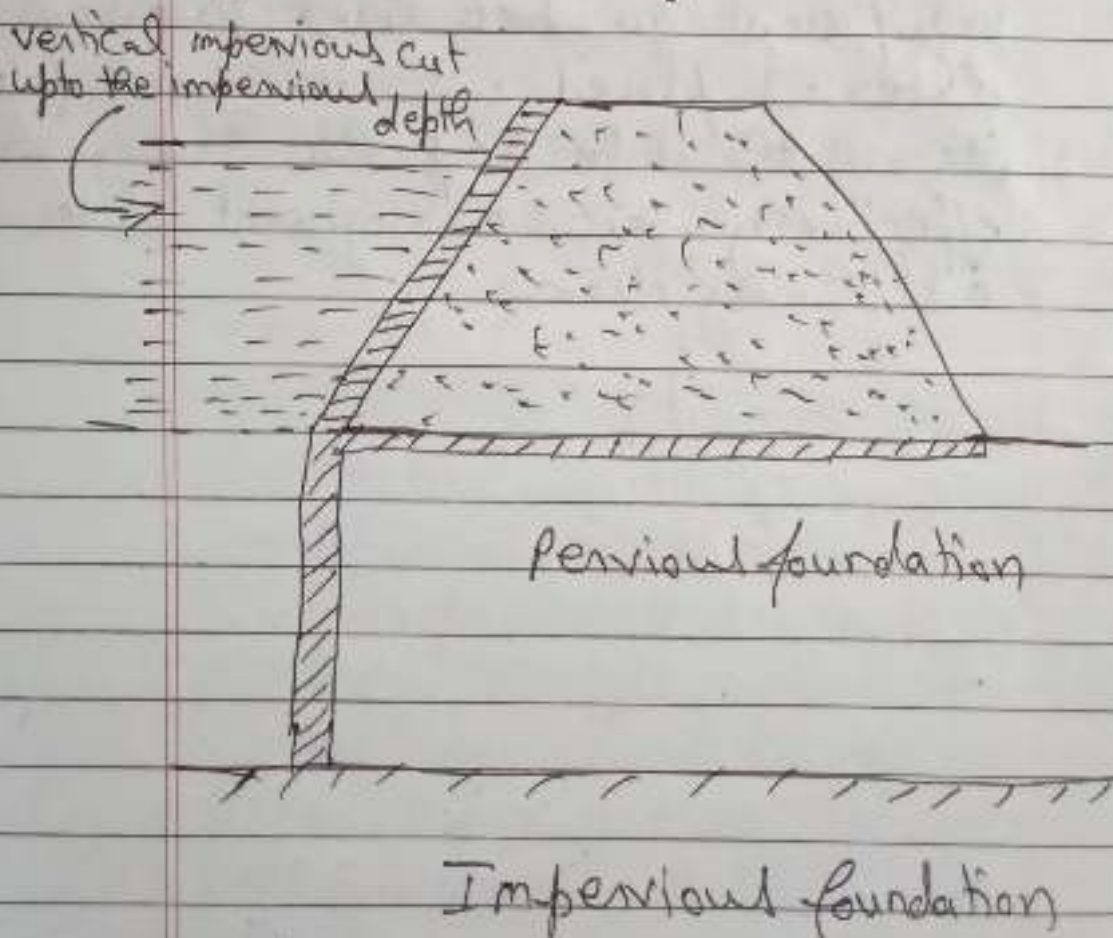 vertical impervious cut
upto the impervious
depth
Pervious foundation
Impervious foundation